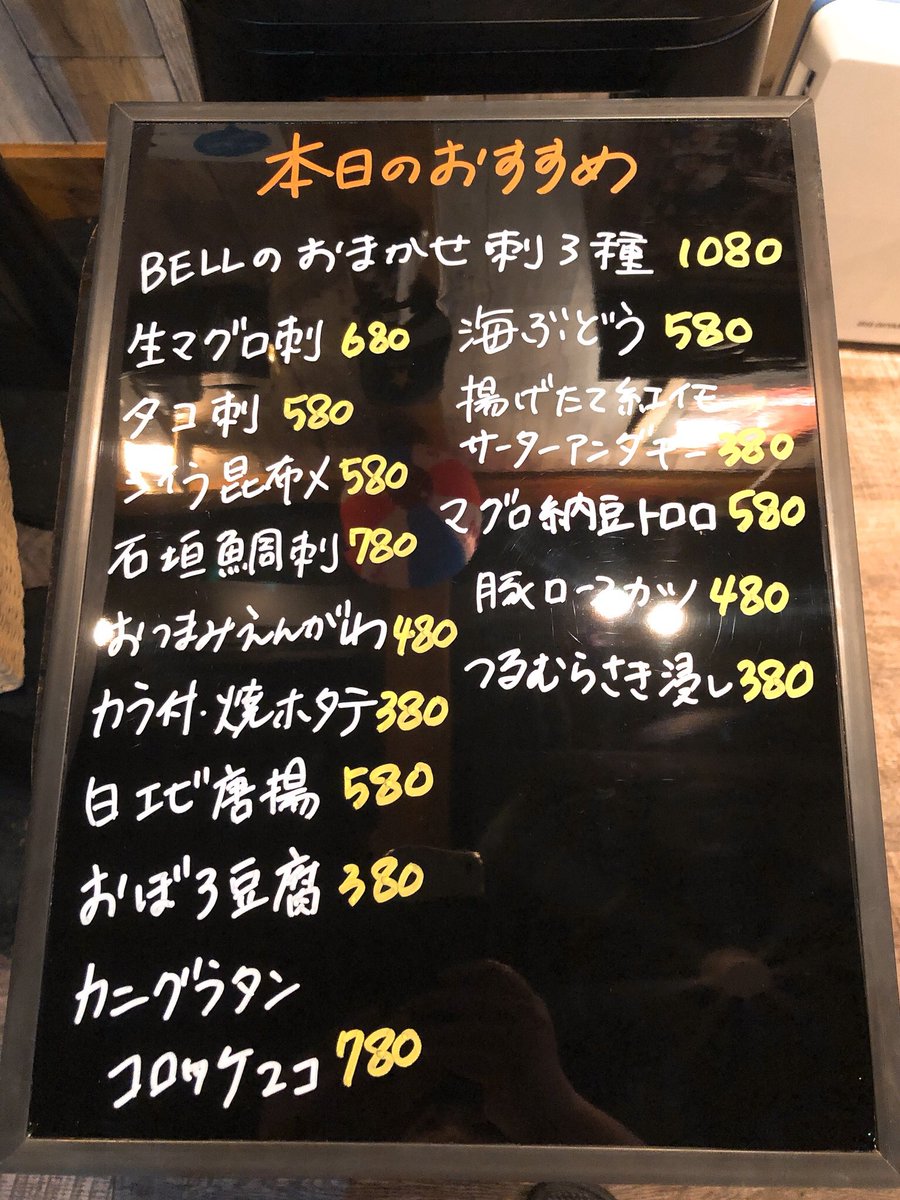 本日のおすすめ
BELLのおまかせ刺3種 1080
生マグロ刺 680
タコ刺 580
シイラ昆布〆 580
石垣鯛刺 780
おつまみえんがわ 480
カラ付・焼ホタテ 380
白エビ唐揚 580
おぼろ豆腐 380
カニグラタン
コロッケ2コ 780
海ぶどう 580
揚げたて紅イモ
サーターアンダギー 380
マグロ納豆トロロ 580
豚ロースカツ 480
つるむらさき浸し 380